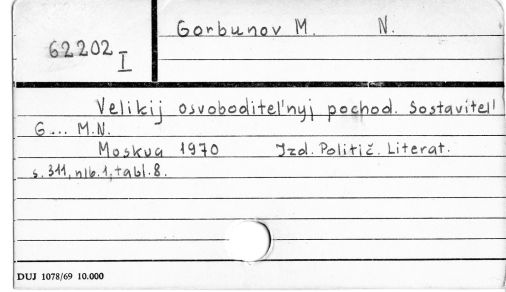 Gorbunov M. N.
62202
I
Velikij osvoboditel'nyj pochod. Sostavitel'
G... M.N.
Moskva 1970 Izd. Politič. Literat.
s. 311, nlb. 1, tabl. 8.
DUJ 1078/69 10.000